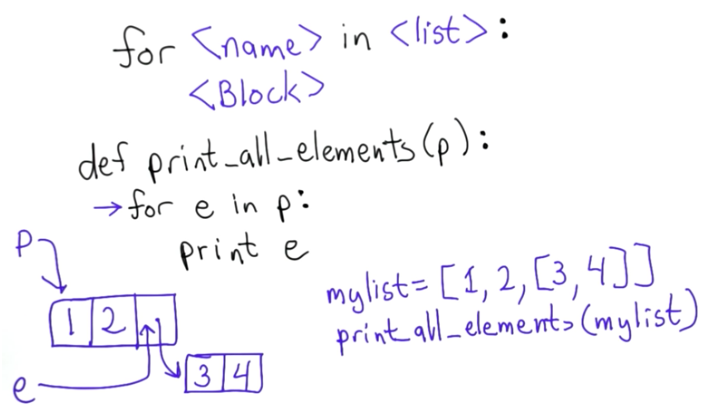 for <name> in <list>:
<Block>
def print_all_elements(p):
→for e in p:
print e
p
1 2
3 4
e
mylist = [1, 2, [3, 4]]
print_all_elements(mylist)